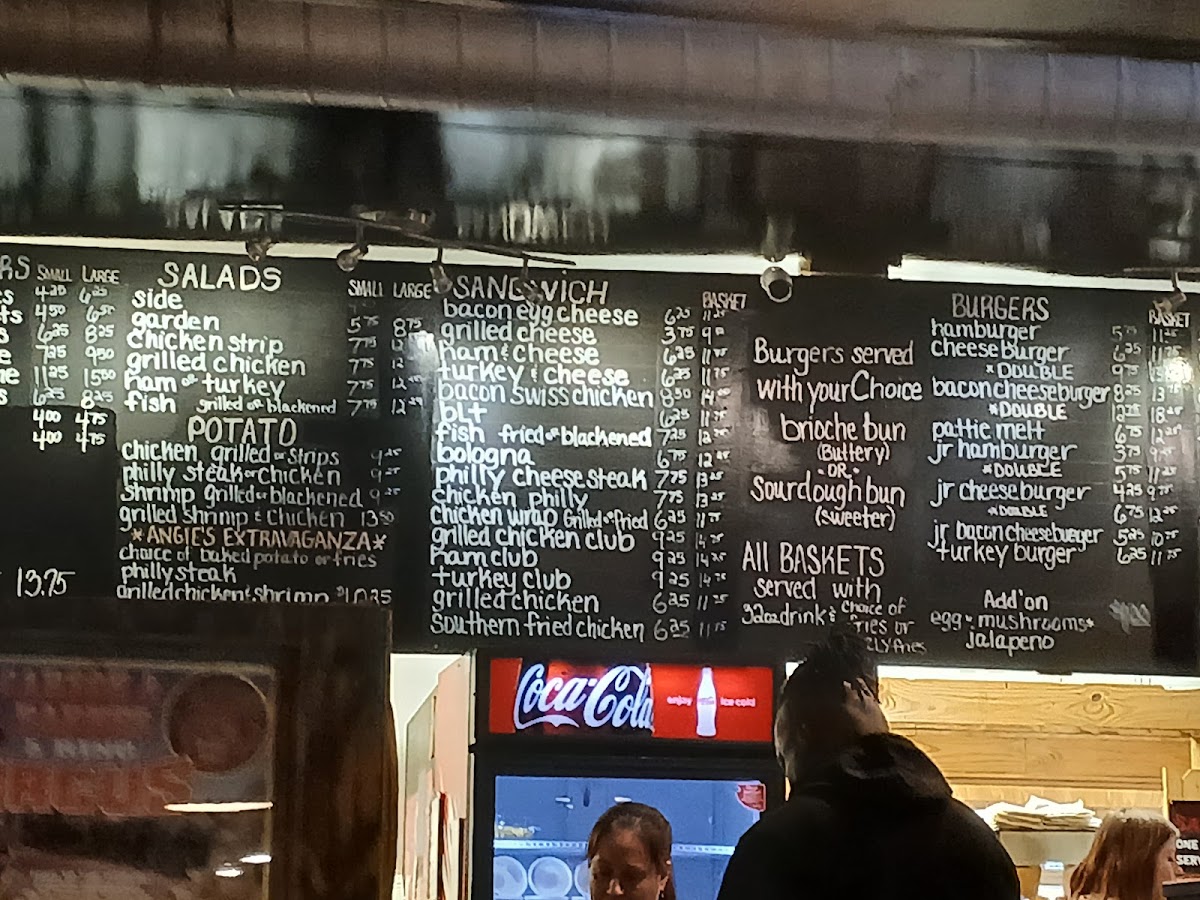 SMALL LARGE
4.25 6.25
4.50 6.50
6.25 8.25
7.25 9.50
11.25 15.50
6.25 8.25
4.00 4.75
4.00 4.75
13.75
SALADS
SMALL LARGE
side
garden 5.75 8.75
chicken strip 7.75
grilled chicken 7.75
ham or turkey 7.75
fish grilled or blackened 7.75
POTATO
chicken grilled or strips 9.25
philly steak or chicken 9.25
shrimp grilled or blackened 9.25
grilled shrimp & chicken 13.50
*ANGIE'S EXTRAVAGANZA*
choice of baked potato or fries
philly steak
grilled chicken & shrimp
SANDWICH
BASKET
bacon egg cheese 6.25
grilled cheese 3.75
ham & cheese 6.25 11.75
turkey & cheese 6.25 11.75
bacon swiss chicken 8.50
blt 6.25 11.75
fish fried or blackened 7.25
bologna 6.75
philly cheese steak 7.75 13.25
chicken philly 7.75 13.25
chicken wrap Grilled or fried 6.25 11.75
grilled chicken club 9.25 14.75
ham club 9.25 14.75
turkey club 9.25 14.75
grilled chicken 6.25 11.75
Southern fried chicken 6.25 11.75
Burgers served
with your Choice
brioche bun
(Buttery)
-OR-
Sourdough bun
(sweeter)
All BASKETS
served with
32oz drink & choice of
fries or
BURGERS
BASKET
hamburger 5.75
cheeseburger 6.25 11.75
*DOUBLE 9.75
bacon cheeseburger 8.25
*DOUBLE
pattie melt 6.75
jr hamburger 3.75
*DOUBLE 5.75
jr cheeseburger 4.25 9.75
*DOUBLE 6.75
jr bacon cheeseburger 5.25 10.75
turkey burger 6.25 11.75
Add'on
egg * mushrooms*
jalapeno
Coca-Cola
enjoy
ice cold
ONE
SERV